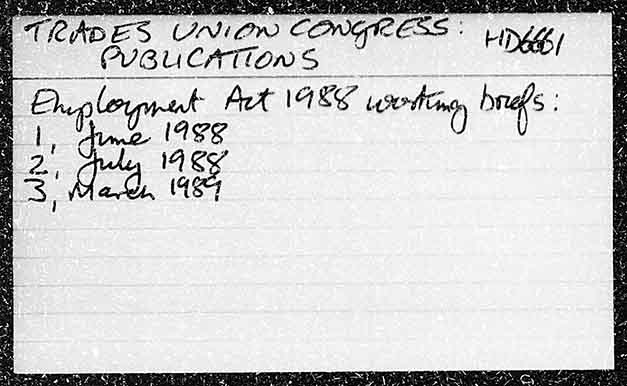 TRADES UNION CONGRESS: HD6661
PUBLICATIONS
Employment Act 1988 working briefs:
1, June 1988
2, July 1988
3, March 1989